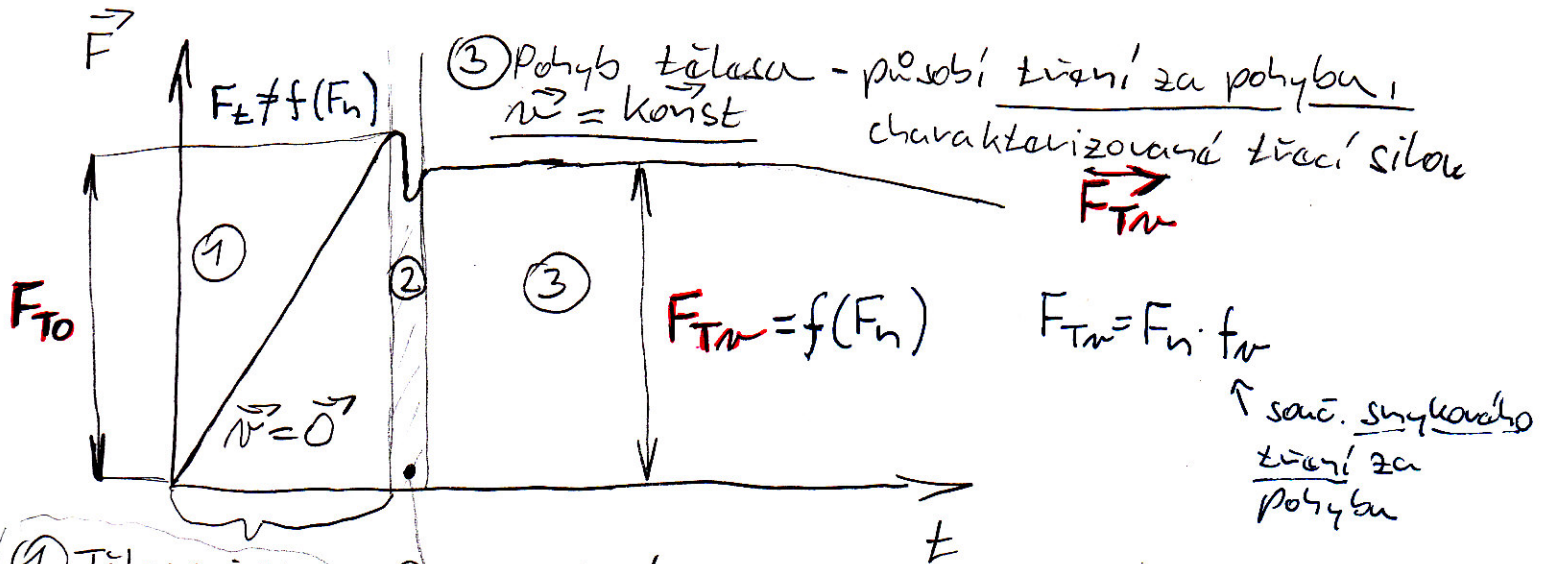 F⃗
③ Pohyb tělesa - působí tření za pohybu,
v⃗ = konst
charakterizované třecí silou
F⃗_Tv
F_t ≠ f(F_n)
①
②
③
F_T0
F_Tv = f(F_n)
F_Tv = F_n · f_v
↑ souč. smykového
tření za
pohybu
v⃗ = 0⃗
t
①